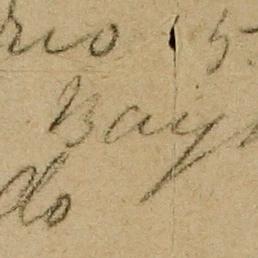 rio 5.
Bay
do